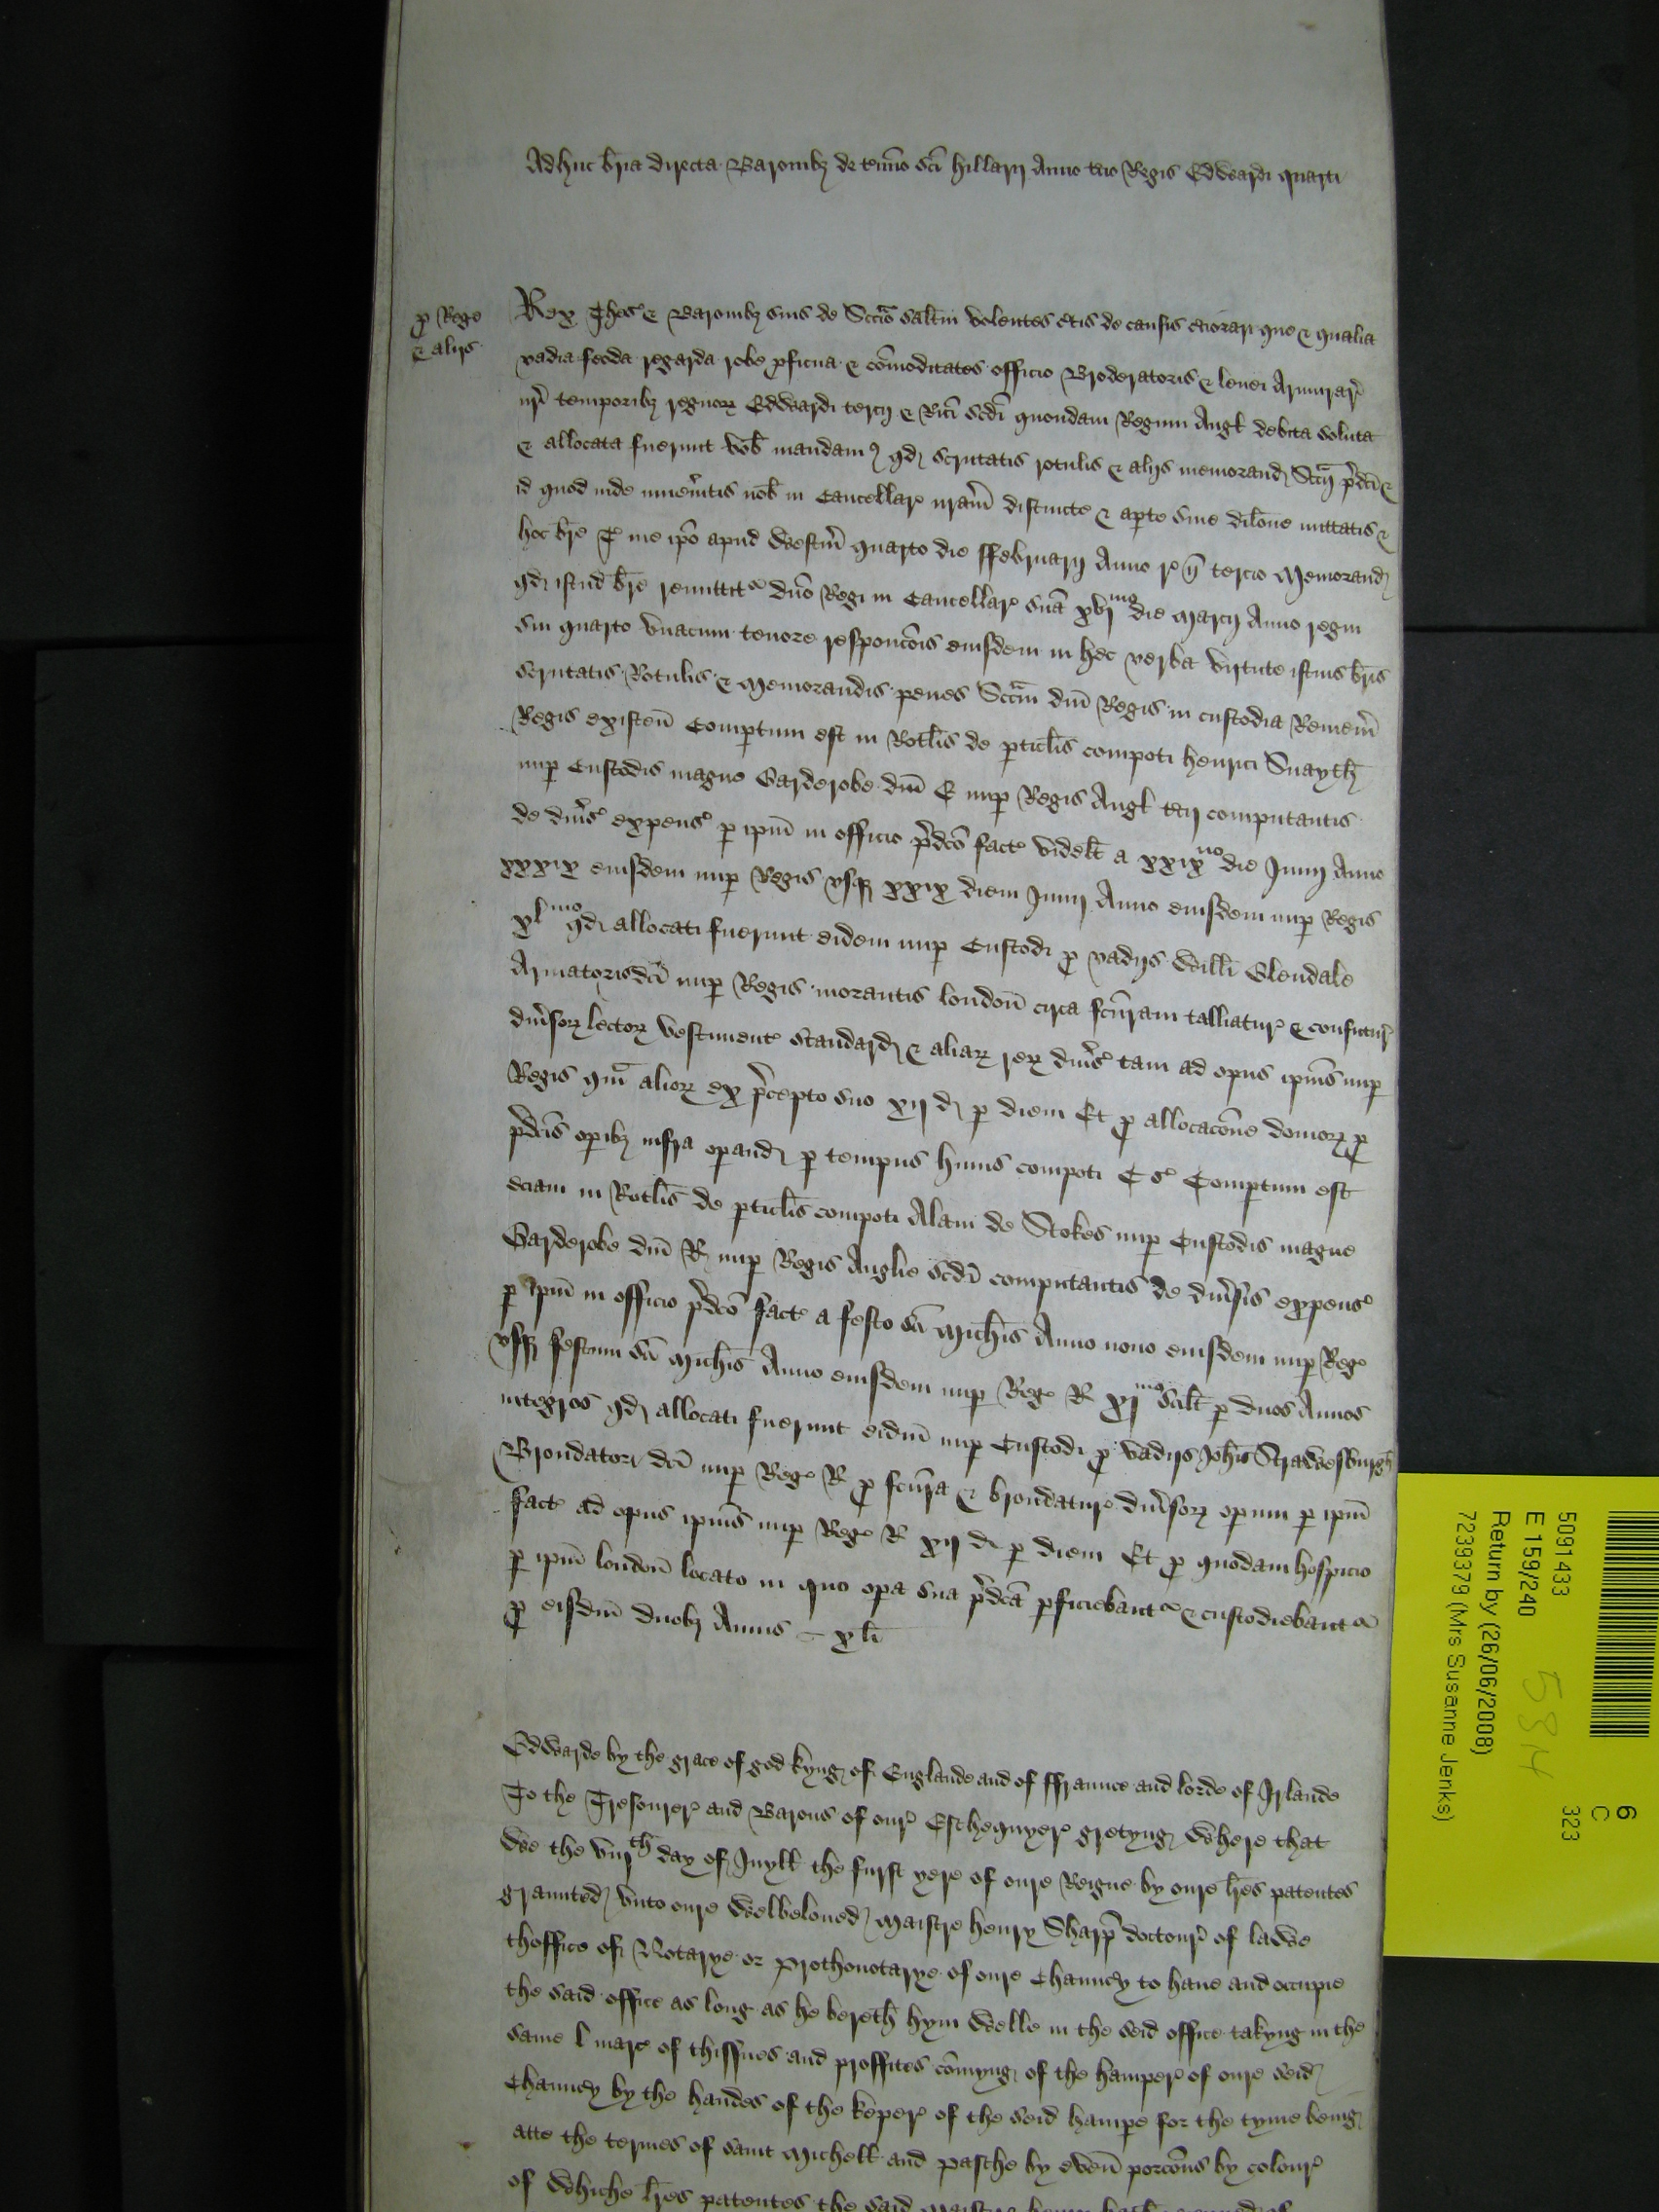 Adhuc bria directa Baronibȝ de termo sci Hillarij Anno tcio Regis Edwardi quarti
p Rege
& alijs
Rex Thes & Baronibȝ suis de Sccio saltm volentes ctis de causis ctiorari que & qualia
vadia feoda regarda robe pficua & comoditates officio Broderatoris & Armurar
nri temporibȝ regnoꝝ Edwardi tercij & Rici scdi quondam Regum Angl debita soluta
& allocata fuerunt vob mandamꝰ qd scrutatis rotulis & alijs memorand Sccij pdci &
id quod inde inuenitis nob in Cancellar nram distincte & apte sine dilone mittatis &
hoc bre T me ipo apud Westm quarto die ffebruarij Anno r n tercio Memorand
qd istud bre remittit dno Regi in Cancellar sua xvjmo die Marcij Anno regni
sui quarto vnacum tenore responcois eiusdem in hec verba virtute istius bris
scrutatis Rotulis & Memorandis penes Sccm dni Regis in custodia Rememr
Regis existen Comptum est in Rotlis de pticlis compoti Henrici Snayth
nup Custodis magne Garderobe dni E nup Regis Angl tcij computantis
de dius expens p ipm in officio pdco fact videlt a xxixno die Junij Anno
xxxix eiusdem nup Regis vsqꝫ xxix diem Junij Anno eiusdem nup Regis
xlmo qd allocati fuerunt eidem nup Custodi p vadijs Willi Glendale
Armatoris dci nup Regis morantis london circa fcuram talliatur & confutur
diusoꝝ lectoꝝ vestiment standard & aliaꝝ reꝝ diuis tam ad opus ipius nup
Regis qm alioꝝ ex pcepto suo xij d p diem Et p allocacone domoꝝ p
pdcis opibȝ infra opand p tempus huius compoti C s Comptum est
eciam in Rotlis de pticlis compoti Alani de Stokes nup Custodis magne
Garderobe dni R nup Regis Anglie scdi computantis de diusis expens
p ipm in officio pdco fact a festo sci Michis Anno nono eiusdem nup Reg
vsqꝫ festum sci Michis Anno eiusdem nup Reg R xjmo scilt p duos Annos
integros qd allocati fuerunt eidm nup Custodi p vadijs Johis Strawesburgh
Broudator dci nup Reg R p fcura & broudatur diusoꝝ opum p ipm
fact ad opus ipius nup Reg R xij d p diem Et p quodam hospicio
p ipm london locato in quo opa sua pdca pficiebant & custodiebant
p eisdm duobȝ Annis – x li
Edwarde by the grace of god kyng of Englande and of ffraunce and lorde of Irlande
To the Tresourer and Barons of our Eschequyer gretyng Where that
We the viijth day of Juyll the furst yere of oure Reigne by oure lres patentes
graunted vnto oure Welbeloued Maistre Henry Sharp doctour of lawe
thoffice of Notarye or Prothonotarye of oure Chauncy to haue and occupie
the said office as long as he bereth hym Welle in the seid office takyng in the
same l marc of thissues and proffites comyng of the hamper of oure seid
Chauncy by the handes of the keper of the seid hampe for the tyme beng
atte the termes of saint Michell and Pasche by even porcons by colour
of Whiche lres patentes the said Maistre Henry hath
5091433
E 159/240
Return by (26/06/2008)
7239379 (Mrs Susanne Jenks)
6
C
323